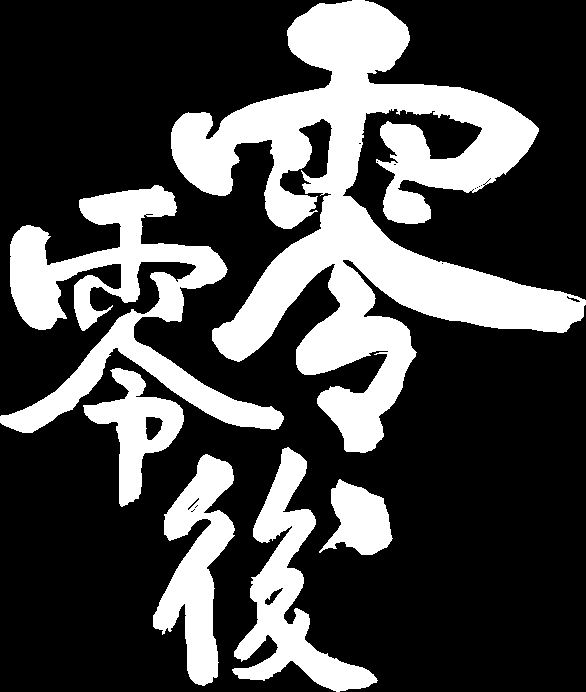 零零後